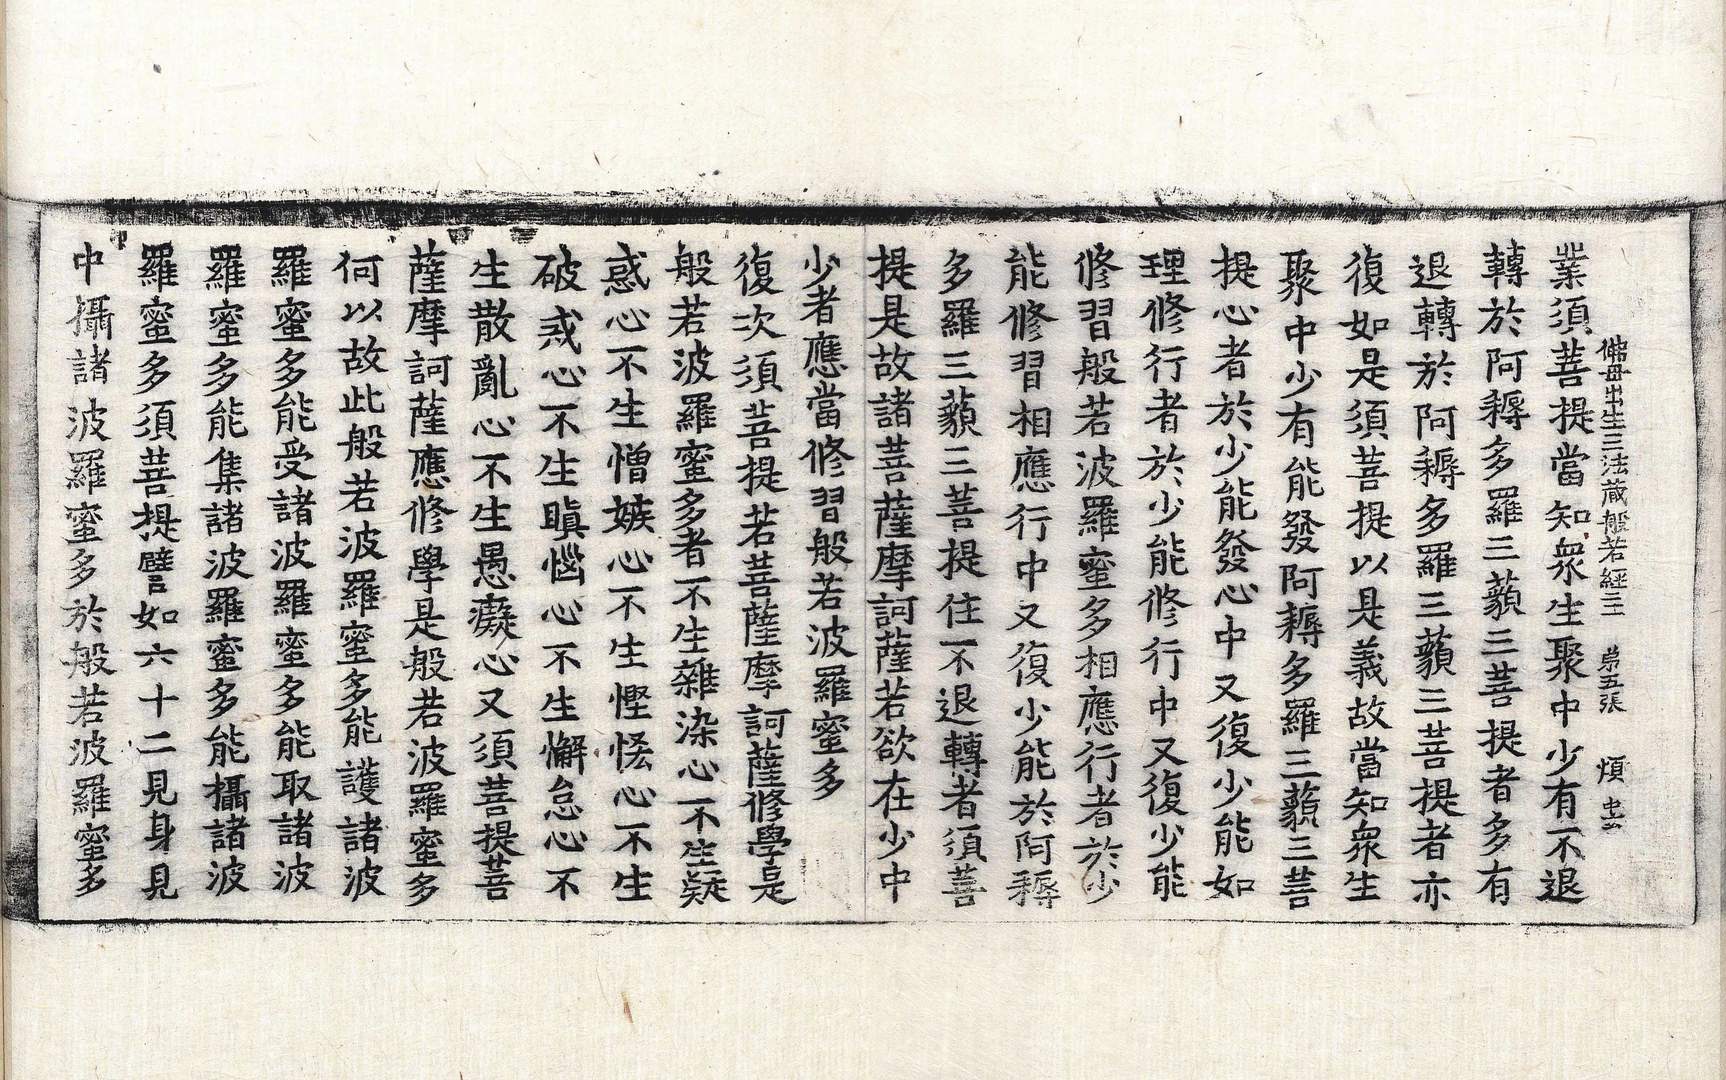 佛母出生三法藏般若經 弟五張 煩
業須菩提當知衆生聚中少有不退
轉於阿耨多羅三藐三菩提者多有
退轉於阿耨多羅三藐三菩提者亦
復如是須菩提以是義故當知衆生
聚中少有能發阿耨多羅三藐三菩
提心者於少能發心中又復少能如
理修行者於少能修行中又復少能
修習般若波羅蜜多相應行者於少
能修習相應行中又復少能於阿耨
多羅三藐三菩提住不退轉者須菩
提是故諸菩薩摩訶薩若欲在少中
少者應當修習般若波羅蜜多
復次須菩提若菩薩摩訶薩修學是
般若波羅蜜多者不生雜染心不生疑
惑心不生憎嫉心不生慳悋心不生
破戒心不生瞋惱心不生懈怠心不
生散亂心不生愚癡心又須菩提菩
薩摩訶薩應修學是般若波羅蜜多
何以故此般若波羅蜜多能護諸波
羅蜜多能受諸波羅蜜多能取諸波
羅蜜多能集諸波羅蜜多能攝諸波
羅蜜多須菩提譬如六十二見身見
中攝諸波羅蜜多於般若波羅蜜多